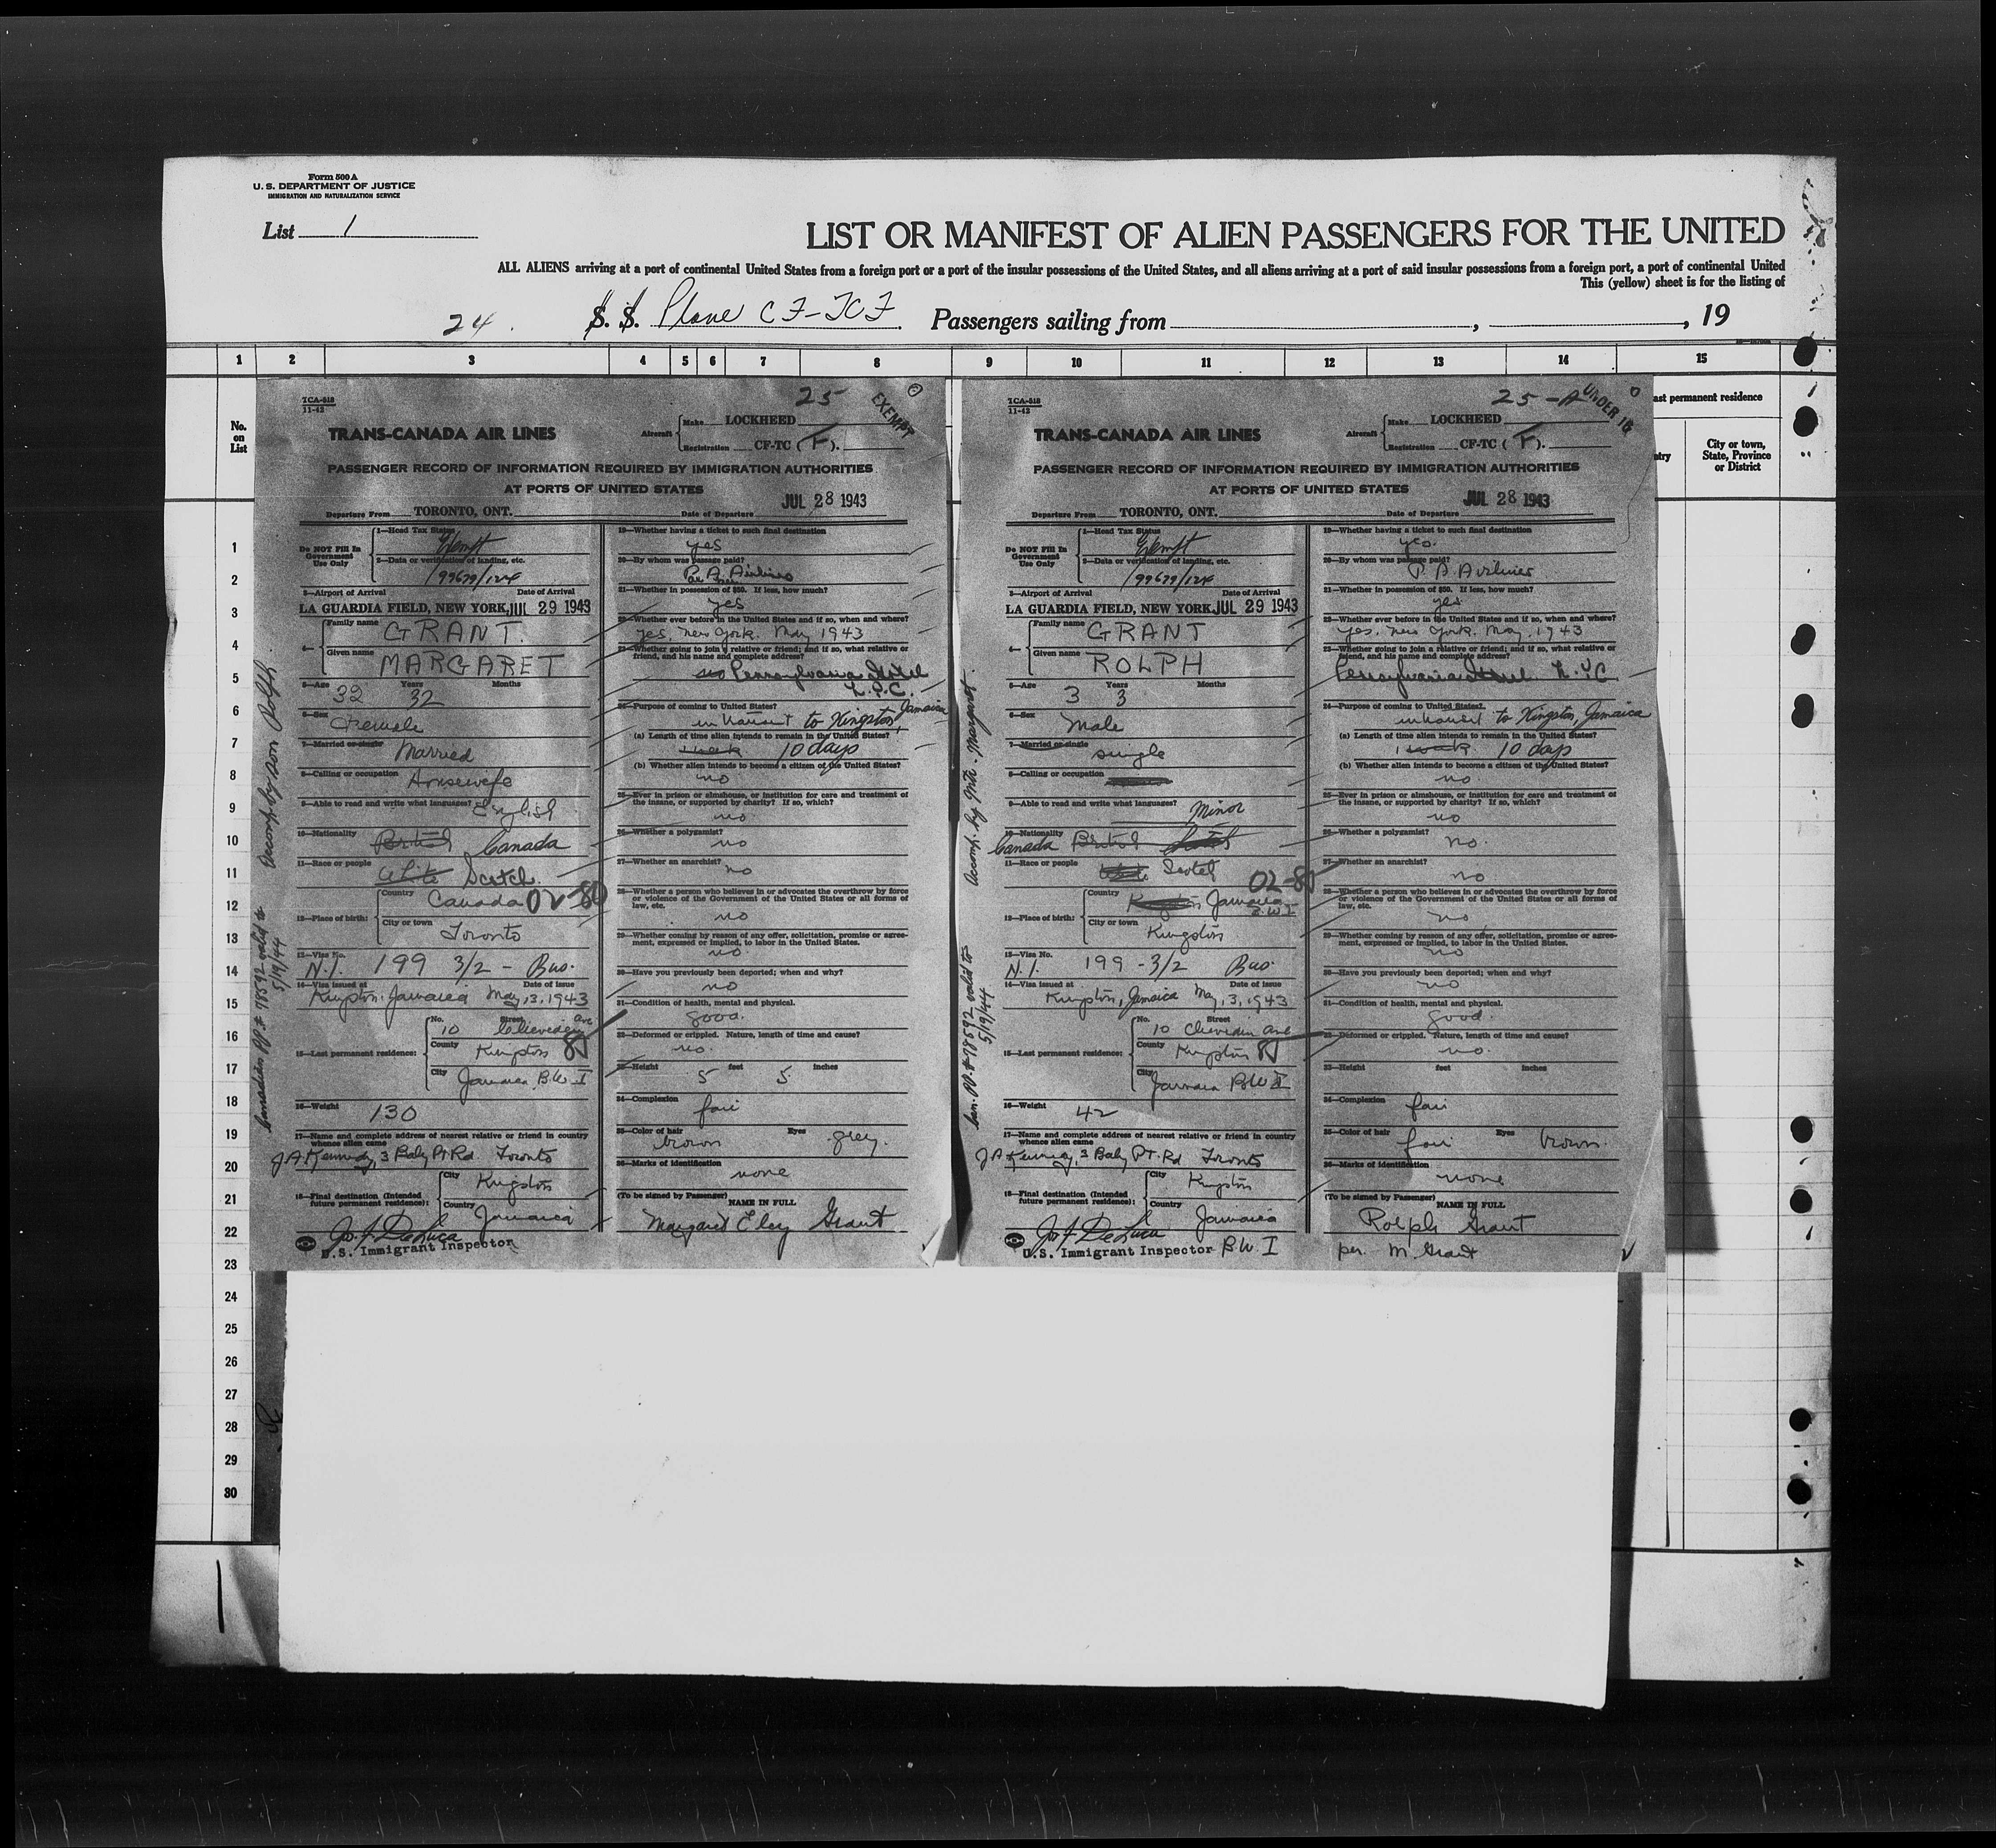 Form 500 A
U. S. DEPARTMENT OF JUSTICE
IMMIGRATION AND NATURALIZATION SERVICE
List 1
LIST OR MANIFEST OF ALIEN PASSENGERS FOR THE UNITED
ALL ALIENS arriving at a port of continental United States from a foreign port or a port of the insular possessions of the United States, and all aliens arriving at a port of said insular possessions from a foreign port, a port of continental United
This (yellow) sheet is for the listing of
24. S. S. Plane CF-TCF. Passengers sailing from , , 19
1 2 3 4 5 6 7 8 9 10 11 12 13 14 15
No. on List
ast permanent residence
ntry
City or town, State, Province or District
1
2
3
4
5
6
7
8
9
10
11
12
13
14
15
16
17
18
19
20
21
22
23
24
25
26
27
28
29
30
TCA-518
11-42
25
EXEMPT
TRANS-CANADA AIR LINES
Aircraft Make LOCKHEED
Registration CF-TC (F).
PASSENGER RECORD OF INFORMATION REQUIRED BY IMMIGRATION AUTHORITIES
AT PORTS OF UNITED STATES
JUL 28 1943
Departure From TORONTO, ONT. Date of Departure
Do NOT Fill In Government Use Only
1—Head Tax Status
Exempt
2—Data or verification of landing, etc.
199679/124
3—Airport of Arrival Date of Arrival
LA GUARDIA FIELD, NEW YORK, JUL 29 1943
4— Family name GRANT.
Given name MARGARET
5—Age 32 Years 32 Months
6—Sex Female
7—Married or single Married
8—Calling or occupation Housewife
9—Able to read and write what languages? English
10—Nationality British Canada
11—Race or people White Scotch.
12—Place of birth: Country Canada 02-80
City or town Toronto
13—Visa No.
N.I. 199 3/2 - Bus.
14—Visa issued at Date of issue
Kingston Jamaica May, 3, 1943
15—Last permanent residence: No. 10 Street Clieveden Ave
County Kingston
City Jamaica B.W.I
16—Weight 130
17—Name and complete address of nearest relative or friend in country whence alien came
J A Kennedy, 3 Baby Pt. Rd Toronto
18—Final destination (Intended future permanent residence): City Kingston
Country Jamaica
Jo. J. DeLuca
U.S. Immigrant Inspector
19—Whether having a ticket to such final destination
yes
20—By whom was passage paid?
Pan Am Airlines
21—Whether in possession of $50. If less, how much?
yes
22—Whether ever before in the United States and if so, when and where?
yes. New York. May 1943
23—Whether going to join a relative or friend; and if so, what relative or friend, and his name and complete address?
no Pennsylvania Hotel
N.Y.C.
24—Purpose of coming to United States?
in transit to Kingston, Jamaica
(a) Length of time alien intends to remain in the United States?
1 week 10 days
(b) Whether alien intends to become a citizen of the United States?
no
25—Ever in prison or almshouse, or institution for care and treatment of the insane, or supported by charity? If so, which?
no
26—Whether a polygamist?
no
27—Whether an anarchist?
no
28—Whether a person who believes in or advocates the overthrow by force or violence of the Government of the United States or all forms of law, etc.
no
29—Whether coming by reason of any offer, solicitation, promise or agreement, expressed or implied, to labor in the United States.
no.
30—Have you previously been deported; when and why?
no
31—Condition of health, mental and physical.
good.
32—Deformed or crippled. Nature, length of time and cause?
no.
33—Height 5 feet 5 inches
34—Complexion fair
35—Color of hair brown Eyes grey.
36—Marks of identification none
(To be signed by Passenger) NAME IN FULL
Margaret Eley Grant
Accomp. by son Rolph.
Canadian PP # 78592 valid to
5/19/44
TCA-518
11-42
25-A
UNDER 16
TRANS-CANADA AIR LINES
Aircraft Make LOCKHEED
Registration CF-TC (F).
PASSENGER RECORD OF INFORMATION REQUIRED BY IMMIGRATION AUTHORITIES
AT PORTS OF UNITED STATES
JUL 28 1943
Departure From TORONTO, ONT. Date of Departure
Do NOT Fill In Government Use Only
1—Head Tax Status
Exempt
2—Data or verification of landing, etc.
199679/124
3—Airport of Arrival Date of Arrival
LA GUARDIA FIELD, NEW YORK JUL 29 1943
4— Family name GRANT
Given name ROLPH
5—Age 3 Years 3 Months
6—Sex Male
7—Married or single single
8—Calling or occupation
9—Able to read and write what languages? Minor
10—Nationality Canada British Scotch
11—Race or people White Scotch
02-80
12—Place of birth: Country Kingston Jamaica B.W.I
City or town Kingston
13—Visa No.
N.I. 199-3/2 Bus.
14—Visa issued at Date of issue
Kingston, Jamaica May, 3, 1943
15—Last permanent residence: No. 10 Street Clieveden Ave
County Kingston
City Jamaica B.W.I
16—Weight 42
17—Name and complete address of nearest relative or friend in country whence alien came
J A Kennedy, 3 Baby Pt. Rd Toronto
18—Final destination (Intended future permanent residence): City Kingston
Country Jamaica
B.W.I
Jo. J. DeLuca
U.S. Immigrant Inspector
19—Whether having a ticket to such final destination
yes.
20—By whom was passage paid?
P. A Airlines
21—Whether in possession of $50. If less, how much?
yes
22—Whether ever before in the United States and if so, when and where?
yes. New York. May, 1943
23—Whether going to join a relative or friend; and if so, what relative or friend, and his name and complete address?
Pennsylvania Hotel N.Y.C
24—Purpose of coming to United States?
in transit to Kingston, Jamaica
(a) Length of time alien intends to remain in the United States?
1 week 10 days
(b) Whether alien intends to become a citizen of the United States?
no
25—Ever in prison or almshouse, or institution for care and treatment of the insane, or supported by charity? If so, which?
no
26—Whether a polygamist?
no.
27—Whether an anarchist?
no
28—Whether a person who believes in or advocates the overthrow by force or violence of the Government of the United States or all forms of law, etc.
no
29—Whether coming by reason of any offer, solicitation, promise or agreement, expressed or implied, to labor in the United States.
no
30—Have you previously been deported; when and why?
no
31—Condition of health, mental and physical.
good.
32—Deformed or crippled. Nature, length of time and cause?
no.
33—Height feet inches
34—Complexion fair
35—Color of hair fair Eyes brown.
36—Marks of identification none
(To be signed by Passenger) NAME IN FULL
Rolph Grant
per. M. Grant
Accomp. by Mth. - Margaret.
Can. PP. # 78592 valid to
5/19/44